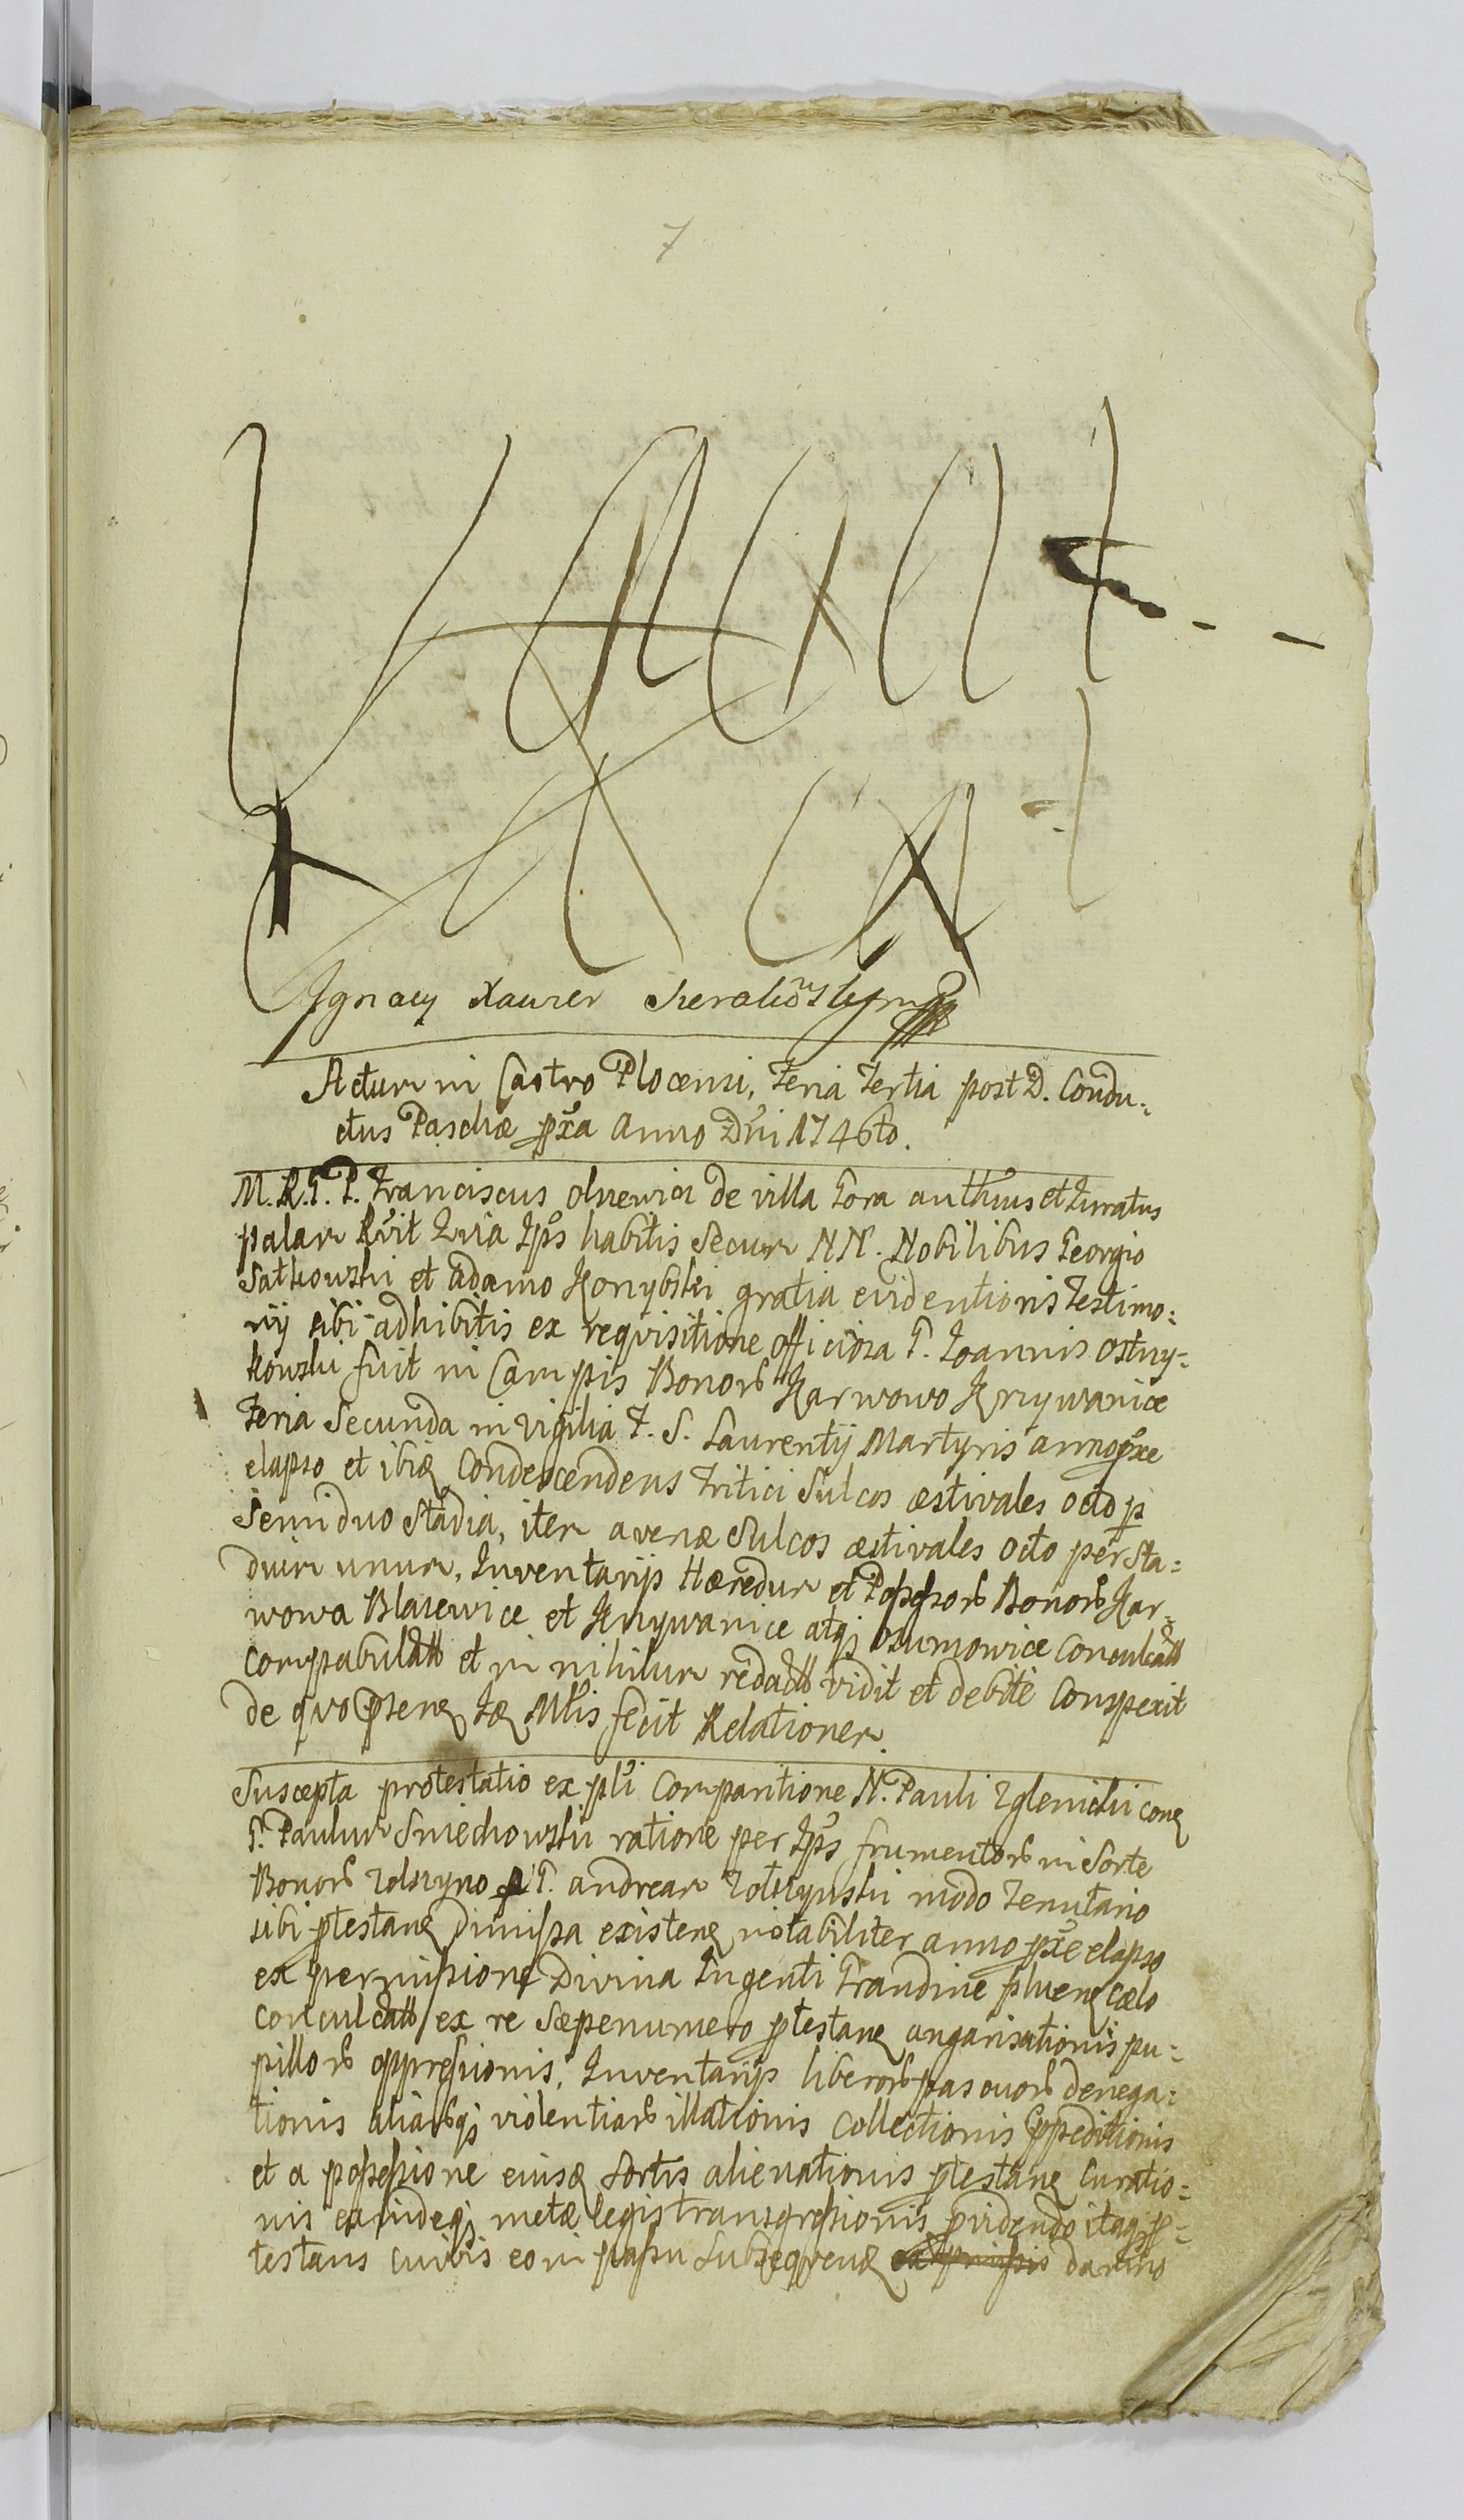 7
Ignacy Xawier
Actum in Castro Plocensi, Feria Tertia post D. Condu:
ctus Paschæ pxa Anno Dni 1746to.
M.R.G.P. Franciscus de villa Gora authus et Iuratus
palam Rvit Qvia Ips habitis Secum NN. Nobilibus Georgio
Satkowski et Adamo Konybski gratia evidentioris Testimo:
nij sibi adhibitis ex reqvisitione officiosa G. Ioannis Ostny:
kowski fuit in Campis Bonorb Karwowo Krzywanice
Feria Secunda in vigilia F. S. Laurentij Martyris anno pxe
elapso et ibiq Condescendens Tritici Sulcos æstivales octo p
Semi duo stadia, item avenæ Sulcos æstivales octo per sta:
dium unum, Inventarijs Hæredum et Possessorb Bonorb Kar:
wowa Blasewice et Krzywanice atqj Osumowice Conculcatt
compabulatt et in nihilum redactt vidit et debite Conspexit
de qvo psenq Iq Mtis fecit Relationem.
Suscepta protestatio ex pli Comparitione N. Pauli Zglenicki conq
G. Paulum Sniechowski ratione per Ips frumentorb in Sorte
Bonorb p G. andream modo Tenutario
sibi ptestanq Dimissa existenq notabiliter anno pxe elapso
ex permissione Divina Ingenti Grandine pluenq cælo
conculcatt ex re sæpenumero ptestanq angarisationis pu:
pillorb oppressionis, Inventarijs liberorb pascuorb denega:
tionis aliarbqj violentiarb illationis Collectionis Expeditionis
et a possessione eiusq Sortis alienationis ptestanq Curatio:
nis exindeqj metæ legis transgressionis pvidendo itaqj p:
testans cuivis eo in passu Subseqvenq damno